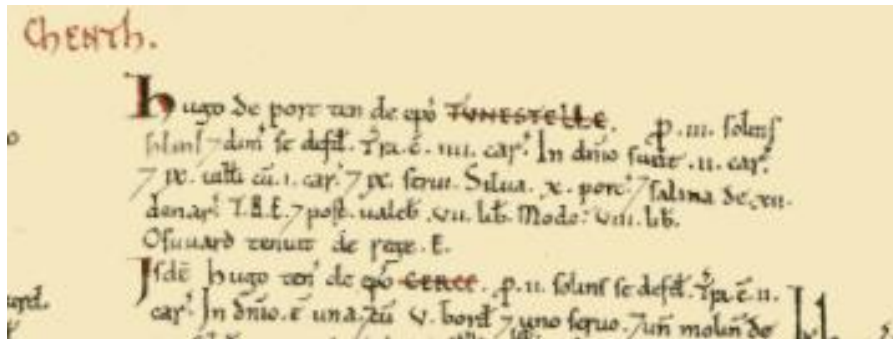 CHENTH.
Hugo de port ten de epō TUNESTELLE. p. III. solins
solins ⁊ dim̄ se defd̄. Tr̄a. ē. IIII. car̄. In dn̄io sunt. II. car̄.
⁊ IX. uilli cū. I. car̄. ⁊ IX. serui. Silua. X. porc̄. ⁊ salina de. XII.
denar̄. T.R.E. ⁊ post. ualeb̄. VII. lib̄. Modo: VIII. lib̄.
Osuuard tenuit de rege. E.
Isdē hugo ten̄ de epō CERCE. p. II. solins se defd̄. Tr̄a. ē. II.
car̄. In dn̄io. ē una. ⁊ cū V. bord̄ ⁊ uno seruo. ⁊ un̄ molin̄ de